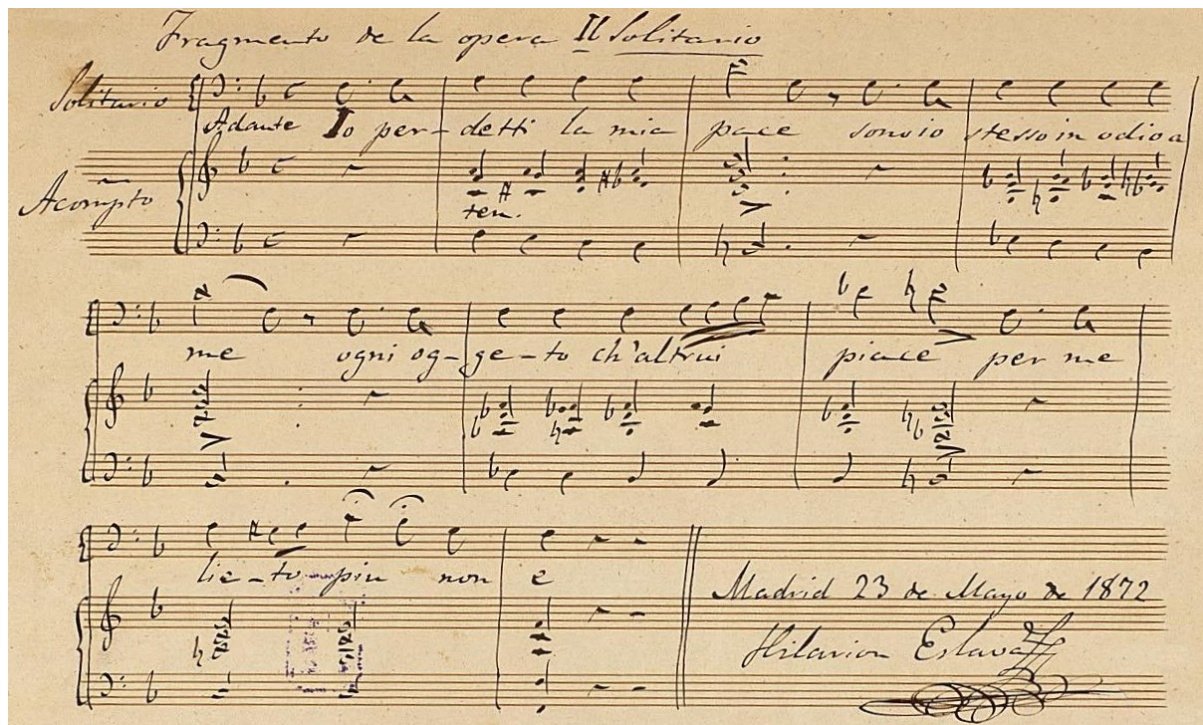 Fragmento de la opera Il Solitario
Solitario
Adante Io per-detti la mia pace sono io stesso in odio a
Acompto
ten.
me ogni og-ge-to ch'altrui piace per me
lie-to piu non e
Madrid 23 de Mayo de 1872
Hilarion Eslava